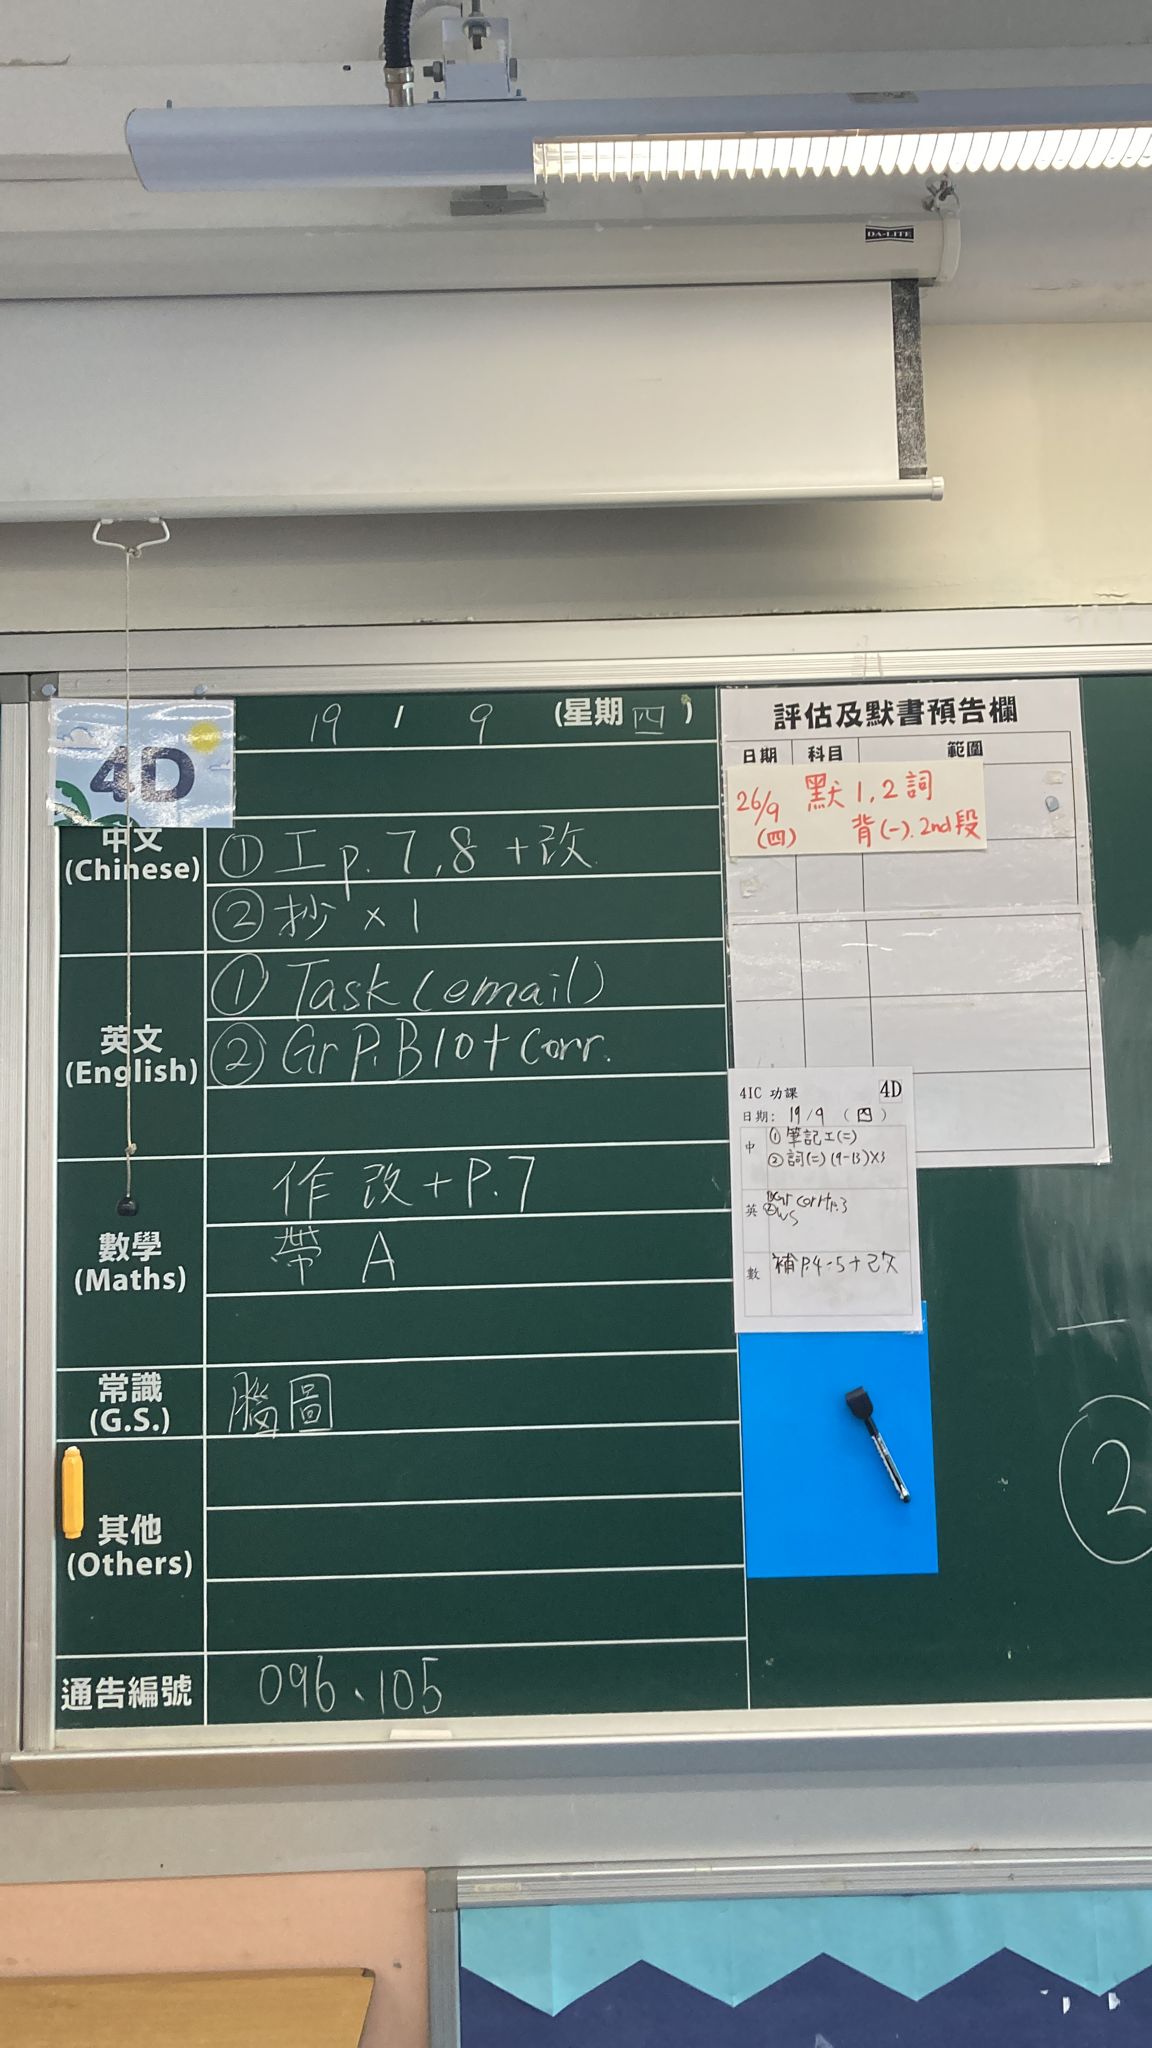 DA-LITE
4D
19 / 9 (星期四)
中文
(Chinese)
① 工 p. 7, 8 + 改
② 抄 x 1
英文
(English)
① Task (email)
② Gr P. B10 + Corr.
數學
(Maths)
作 改 + P.7
帶 A
常識
(G.S.)
腦圖
其他
(Others)
通告編號
096、105
評估及默書預告欄
日期 科目 範圍
26/9 默 1, 2 詞
(四) 背(一). 2nd 段
4IC 功課 4D
日期: 19/9 (四)
中 ① 筆記工(二)
② 詞(二) (9-13) x3
英 ① Gr corr+P.3
② WS
數 補 P.4-5 + 改
2